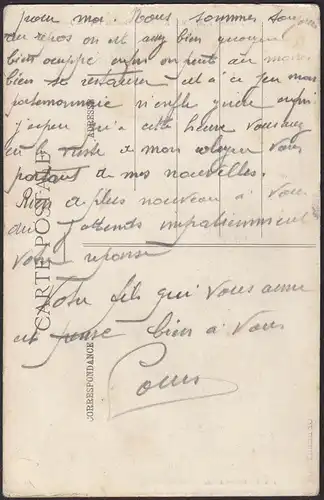 pour moi. Nous sommes toujours
au repos on est assez bien quoique
bien occupé enfin on peut au moins
bien se restaurer et à ce jeu mon
portemonnaie n'enfle guère enfin
j'espère qu'à cette heure vous avez
eu la visite de mon vous
portant de mes nouvelles.
Rien de plus nouveau à vous
dire J'attends impatiemment
votre réponse
Votre fils qui vous aime
et pense bien à vous
Louis
CARTE POSTALE
CORRESPONDANCE
ADRESSE